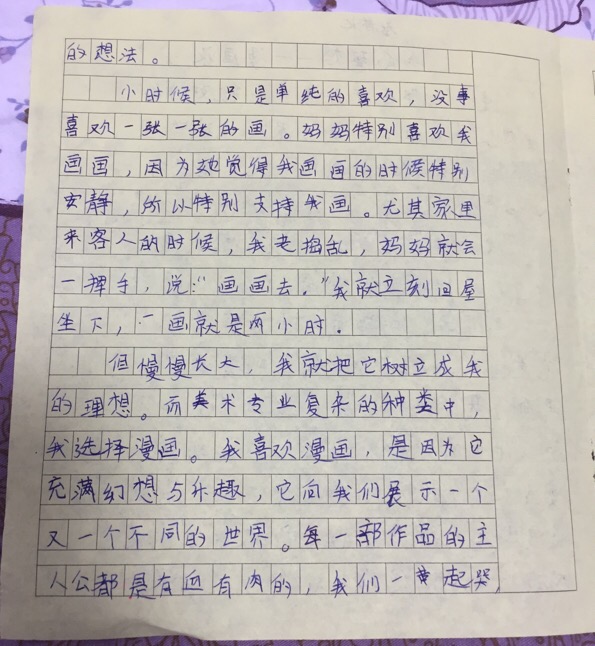 的想法。
小时候，只是单纯的喜欢，没事
喜欢一张一张的画。妈妈特别喜欢我
画画，因为她觉得我画画的时候特别
安静，所以特别支持我画。尤其家里
来客人的时候，我老捣乱，妈妈就会
一挥手，说：“画画去。”我就立刻回屋
坐下，一画就是两小时．
但慢慢长大，我就把它树立成我
的理想。而美术专业复杂的种类中，
我选择漫画。我喜欢漫画，是因为它
充满幻想与乐趣，它向我们展示一个
又一个不同的世界。每一部作品的主
人公都是有血有肉的，我们一起哭，